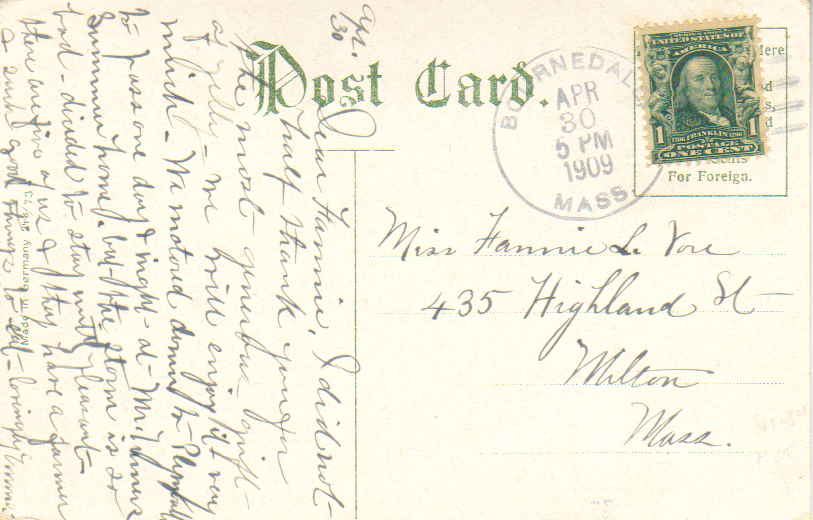 Post Card.
BOURNEDALE
APR
30
5 PM
1909
MASS.
UNITED STATES OF
AMERICA
1 FRANKLIN 1
POSTAGE
ONE CENT
For Foreign.
Miss Fannie L.
435 Highland St
Milton
Mass.
Apr.
30
Dear Fannie, I did not
half thank you for
the most generous gift
of jelly - we will enjoy it very
much - We motored down to
to pass one day & night at Mr.
Summer home, but the storm is so
bad - decided to stay until pleasant
there are five of us & they have a farmer
& such good things to eat - lovingly
Made in Germany